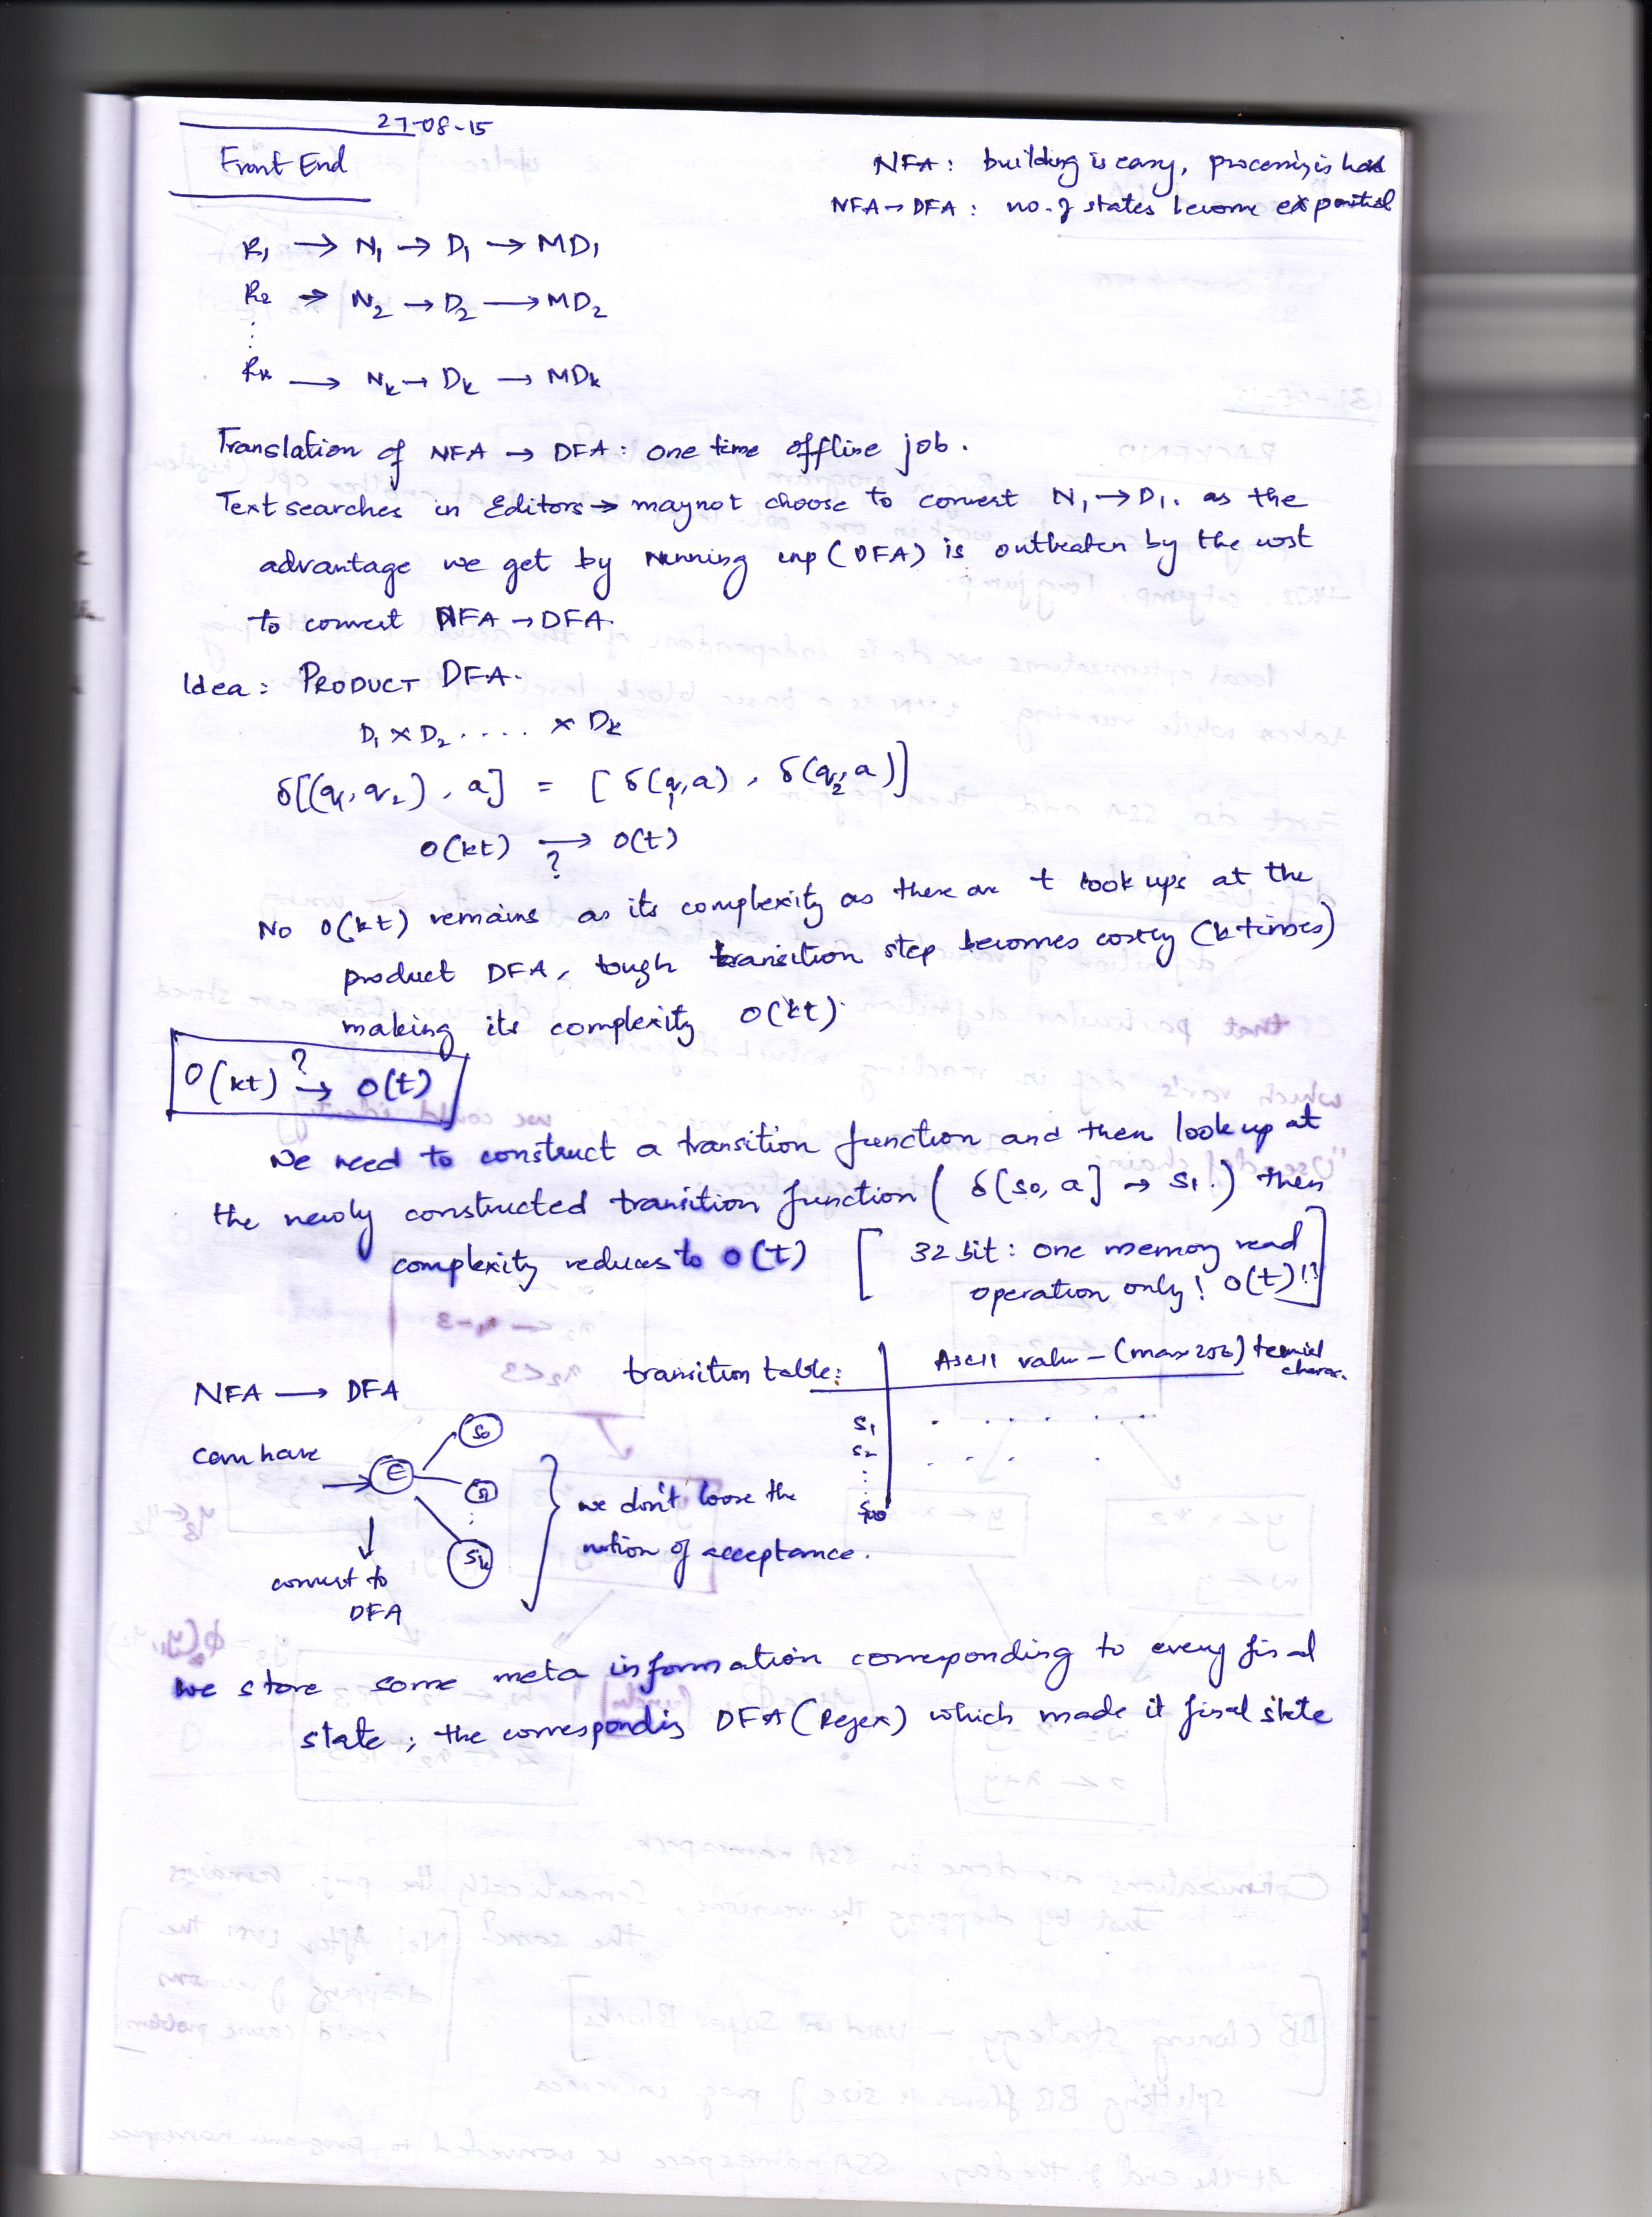 27-08-15
Front End
NFA : building is easy, processing is hard
NFA → DFA : no. of states become exponential
R1 → N1 → D1 → MD1
R2 → N2 → D2 → MD2
⋮
Rk → Nk → Dk → MDk
Translation of NFA → DFA : one time offline job.
Text searches in Editors → may not choose to convert N1 → D1. as the
advantage we get by running inp (DFA) is outbeaten by the cost
to convert NFA → DFA.
Idea : PRODUCT DFA.
D1 × D2 .... × Dk
δ[(q1, q2), a] = [δ(q1, a), δ(q2, a)]
O(kt) →? O(t)
No O(kt) remains as its complexity as there are t look ups at the
product DFA, tough transition step becomes costly (k times)
making its complexity O(kt).
O(kt) →? O(t)
We need to construct a transition function and then look up at
the newly constructed transition function ( δ[s0, a] → s1.) then
complexity reduces to O(t) [ 32 bit : one memory read
operation only! O(t)!! ]
transition table: ASCII value - (max 256) terminal
charac.
S1 . . . . .
S2 . . . .
⋮
NFA → DFA
can have
E
S0
S1
⋮
Sk
convert to
DFA
we don't loose the
notion of acceptance.
we store some meta information corresponding to every final
state ; the correspondig DFA (Regex) which made it final state